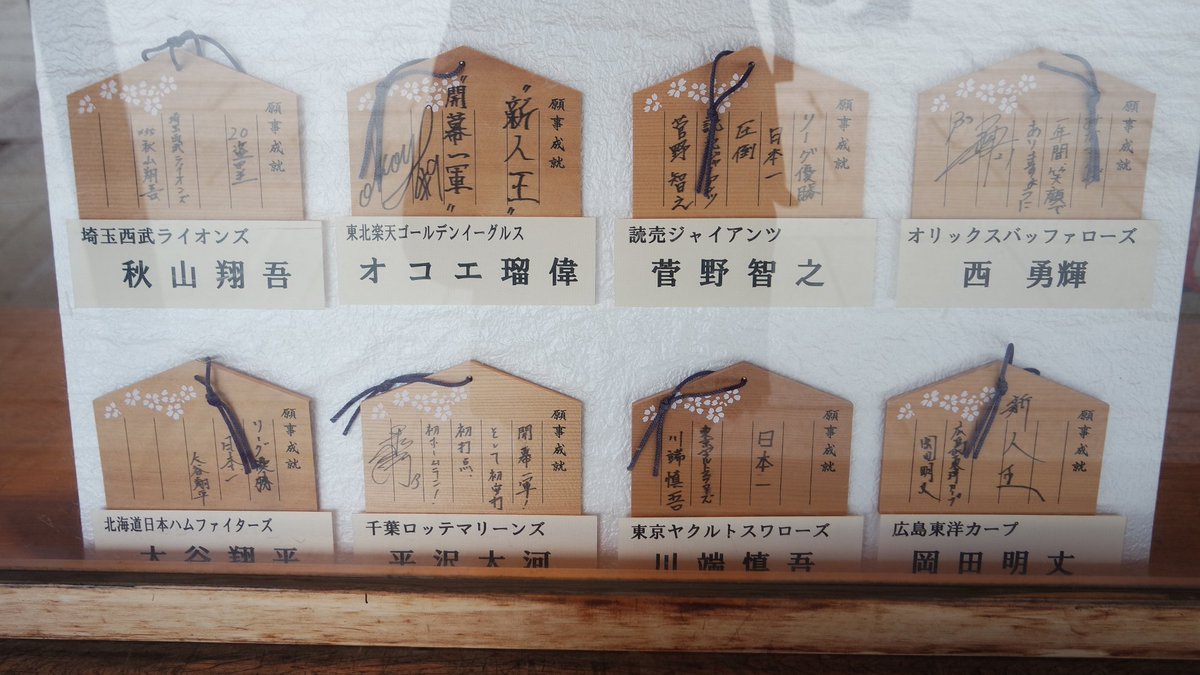 願事成就
20盗塁
埼玉西武ライオンズ
秋山翔吾
埼玉西武ライオンズ
秋山翔吾
願事成就
"新人王"
"開幕一軍"
東北楽天ゴールデンイーグルス
オコエ瑠偉
願事成就
リーグ優勝
日本一
圧倒
読売ジャイアンツ
菅野智之
読売ジャイアンツ
菅野智之
願事成就
一年間笑顔で
ありますように
オリックスバッファローズ
西 勇輝
願事成就
リーグ優勝
日本一
大谷翔平
北海道日本ハムファイターズ
大谷翔平
願事成就
開幕一軍!
として初安打
初打点、
初ホームラン!
千葉ロッテマリーンズ
平沢大河
願事成就
日本一
東京ヤクルトスワローズ
川端慎吾
東京ヤクルトスワローズ
川端慎吾
願事成就
新人王
広島東洋カープ
岡田明丈
広島東洋カープ
岡田明丈